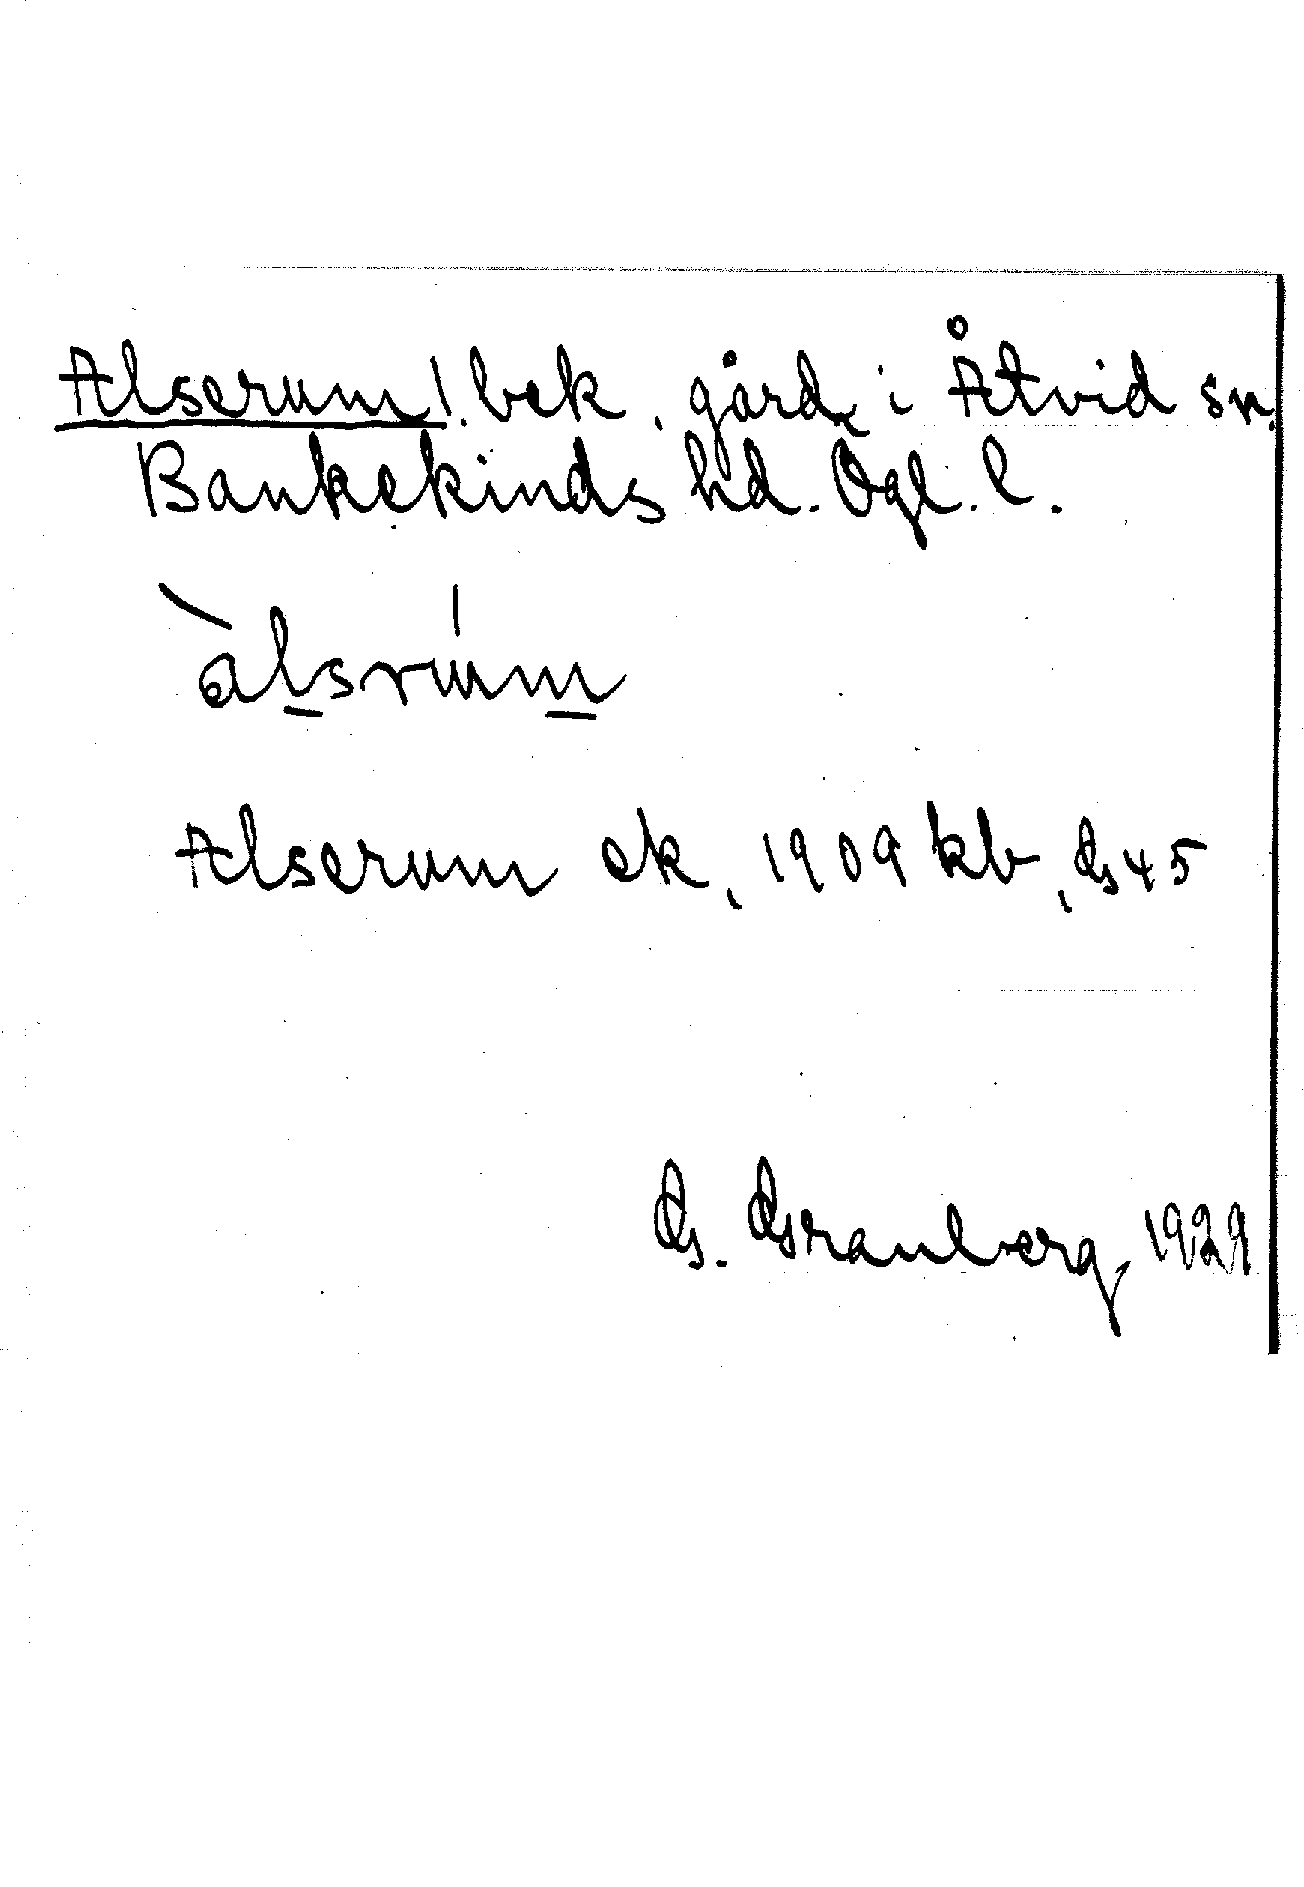 Alserum! bek. gård i Åtvid sn.
Bankekinds hd. Ögl. l.
àlsrúm
Alserum ek, 1909 kb, Gs 45
G. Granberg 1929